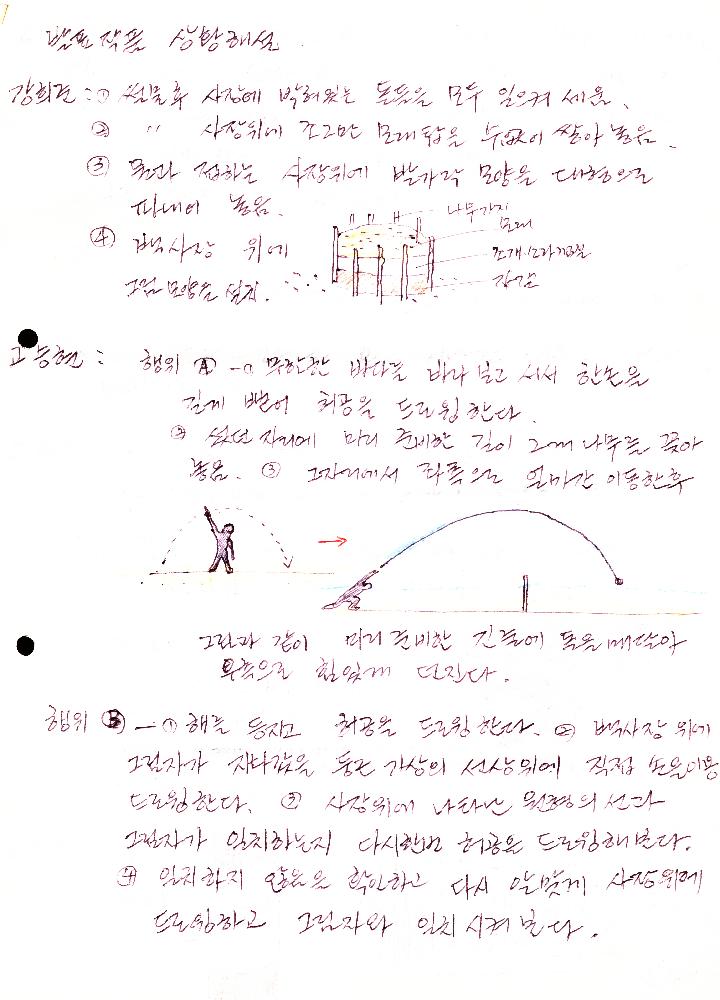 발표작품 상황해설.
강희준 : ① 썰물후 사장에 박혀있는 돌들을 모두 일으켜 세움.
② 〃 사장위에 조그만 모래탑을 수없이 쌓아 놓음.
③ 물과 접하는 사장위에 발가락 모양을 대형으로
파내어 놓음.
④ 백사장 위에
그림모양을 설치.
나무가지
모래
조개/소라껍질
자갈
고승현 : 행위 Ⓐ - ① 무한한 바다를 바라보고 서서 한손을
길게 뻗어 허공을 드로잉한다.
② 섰던 자리에 미리 준비한 길이 2m 나무를 꽂아
놓음. ③ 그자리에서 좌측으로 얼마간 이동한후
그림과 같이 미리 준비한 긴줄에 돌을 매달아
우측으로 힘있게 던진다.
행위 Ⓑ - ① 해를 등지고 허공을 드로잉한다. ② 백사장 위에
그림자가 지나갔을 둥근 가상의 선상위에 직접 손을이용
드로잉한다. ③ 사장위에 나타난 원형의 선과
그림자가 일치하는지 다시한번 허공을 드로잉해본다.
④ 일치하지 않음을 확인하고 다시 알맞게 사장위에
드로잉하고 그림자와 일치시켜 본다.